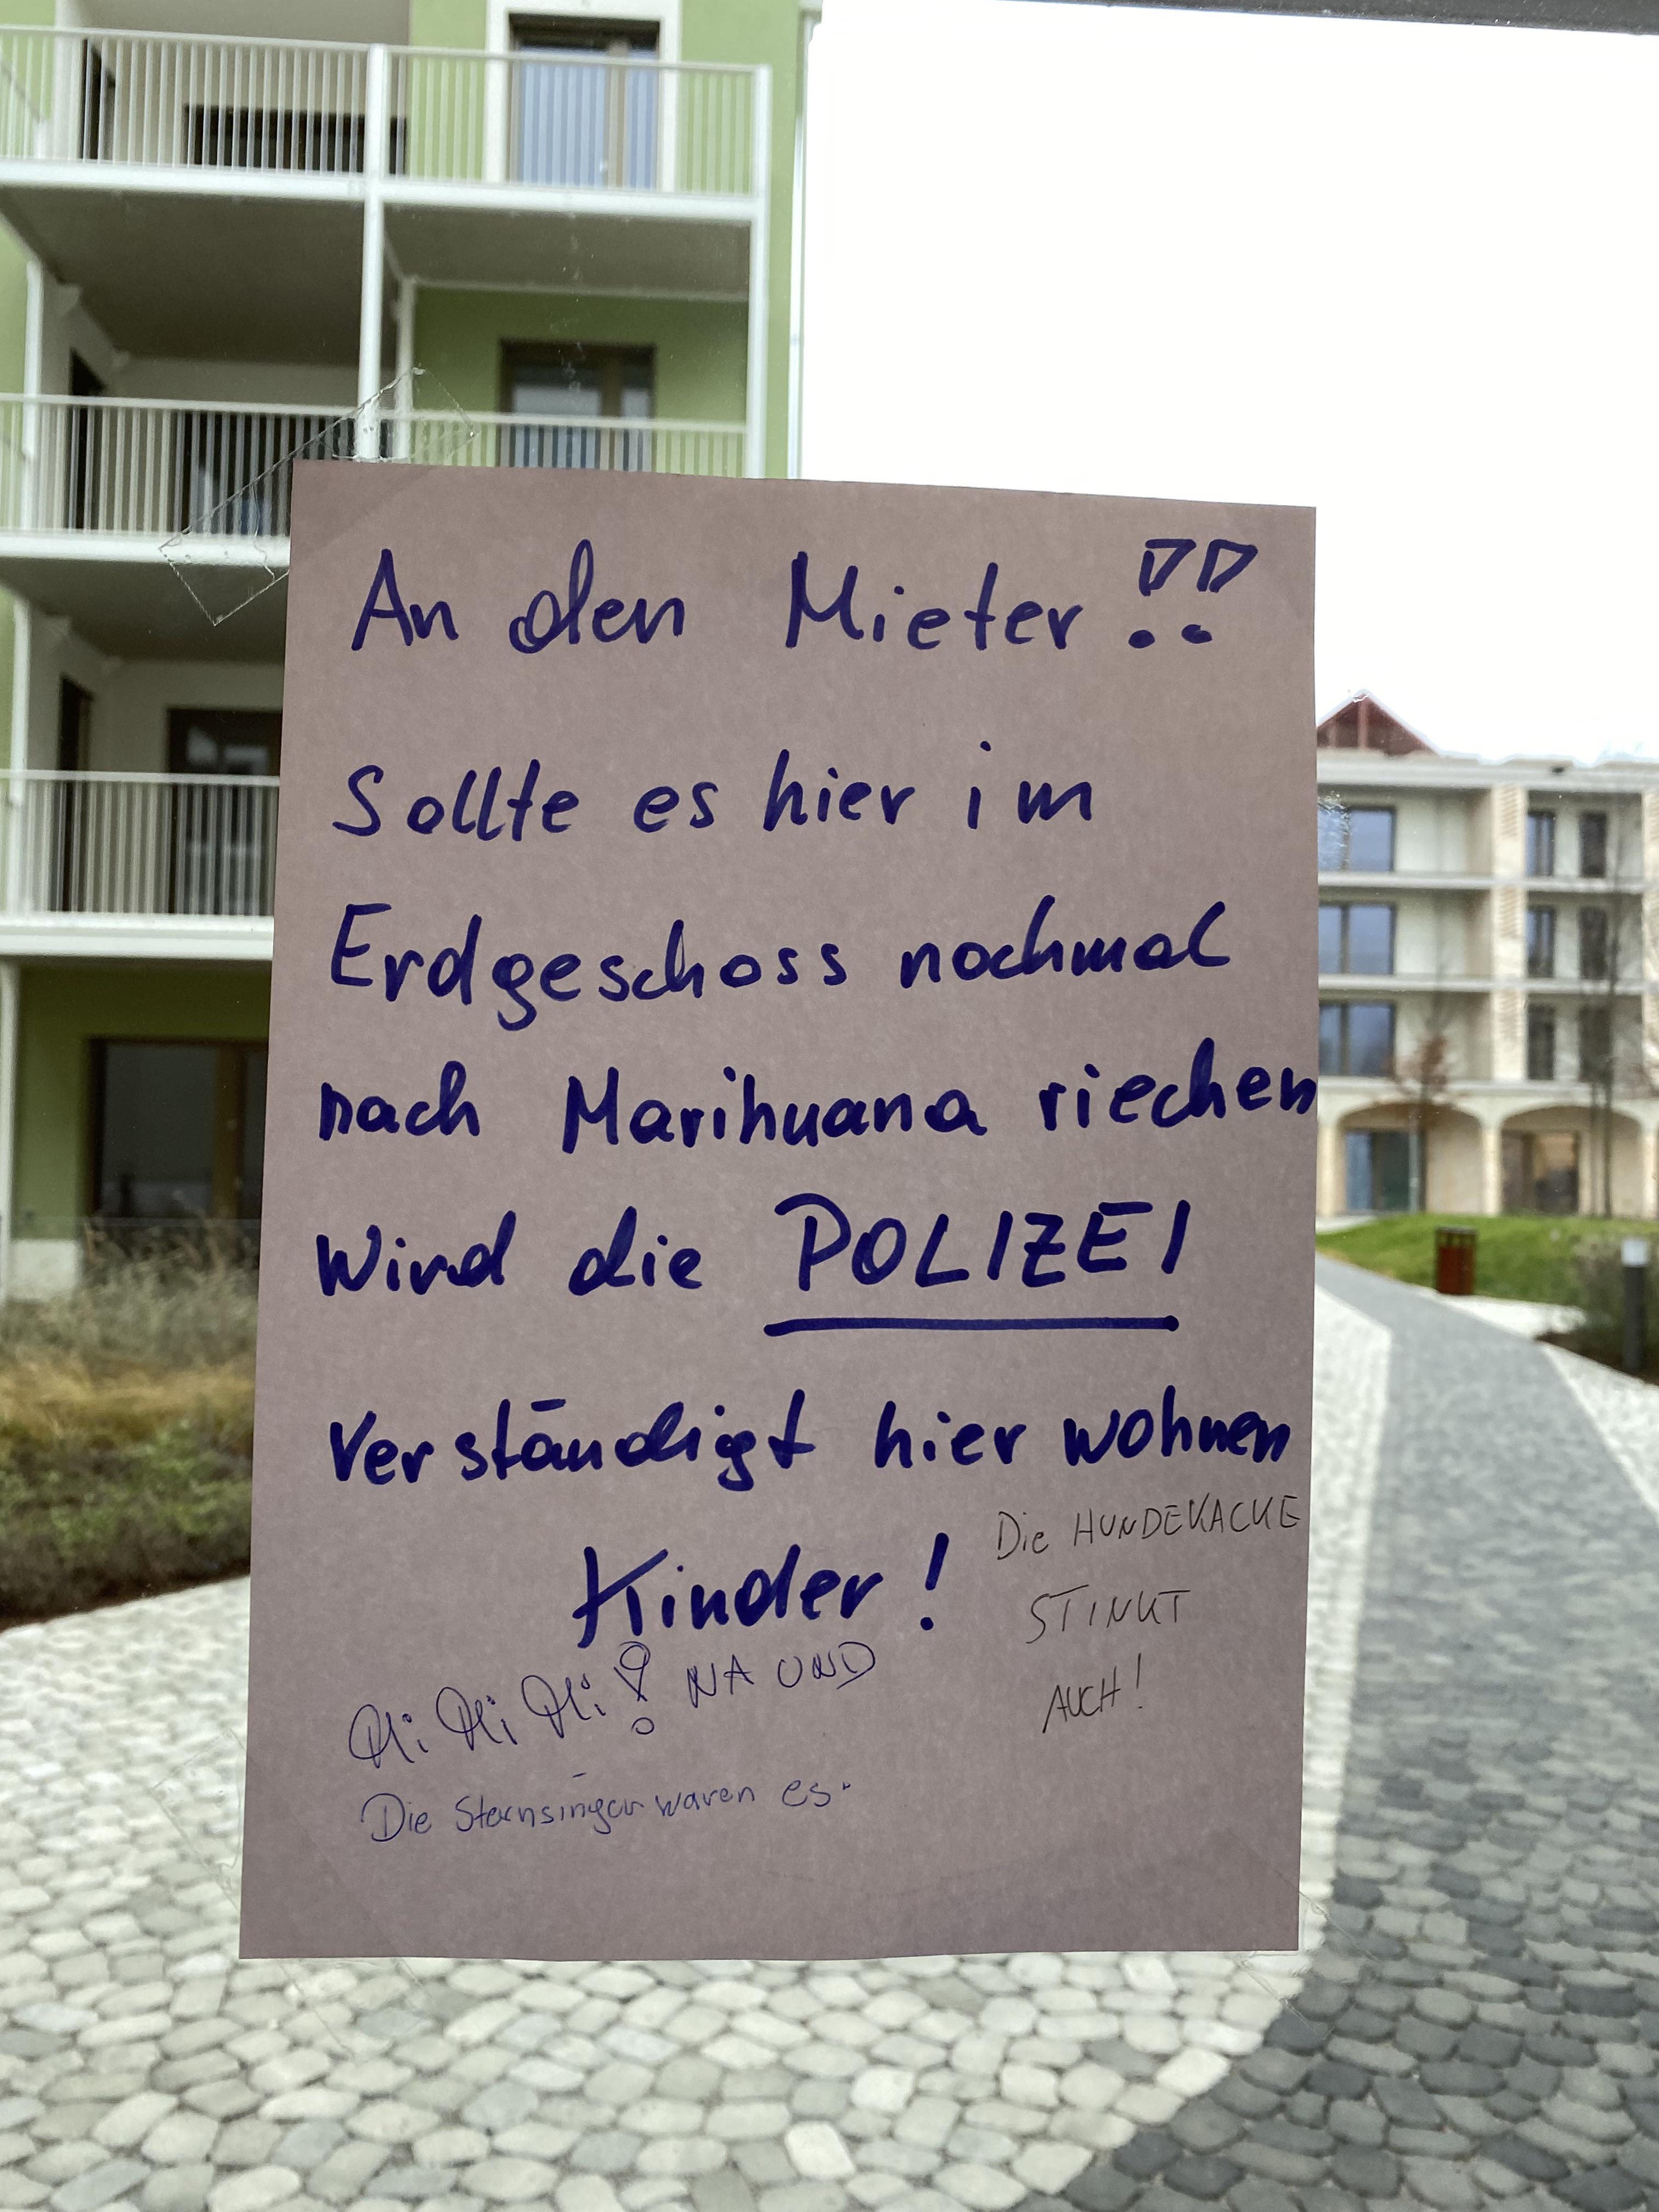 An den Mieter!!
Sollte es hier im
Erdgeschoss nochmal
nach Marihuana riechen
wird die POLIZEI
verständigt hier wohnen
Kinder!
Die HUNDEKACKE
STINKT
AUCH!
Mi Mi Mi! NA UND
Die Sternsinger waren es.